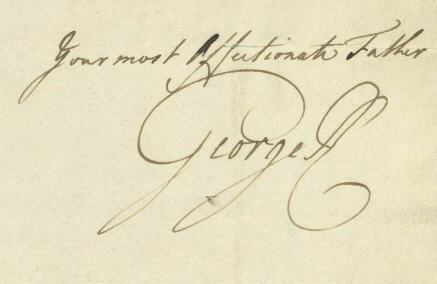 Your most Affectionate Father
George R